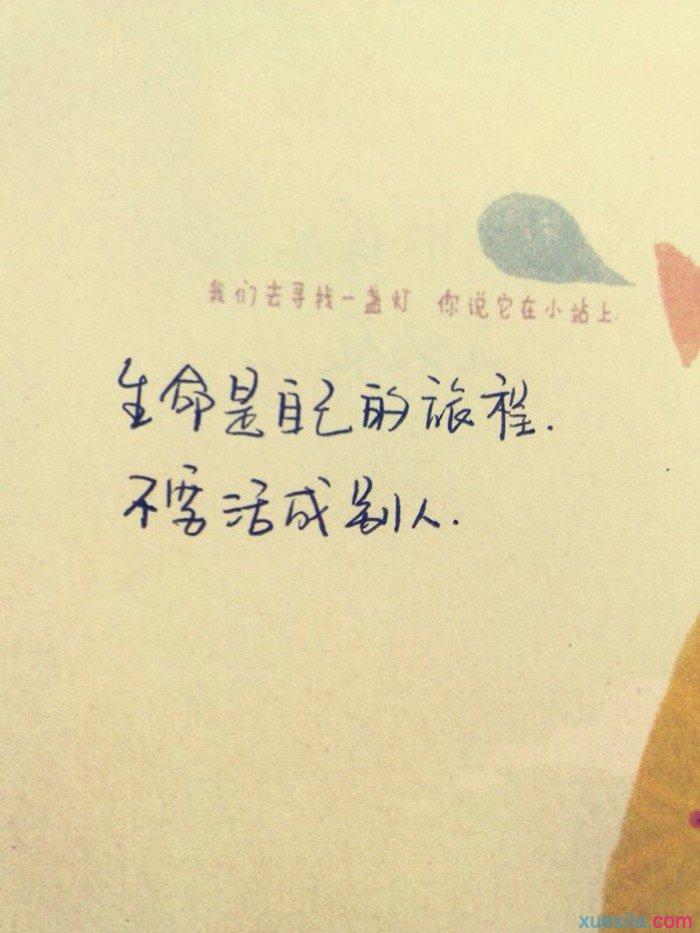 我们去寻找一盏灯 你说它在小站上.
生命是自己的旅程.
不要活成别人.
xuexila.com